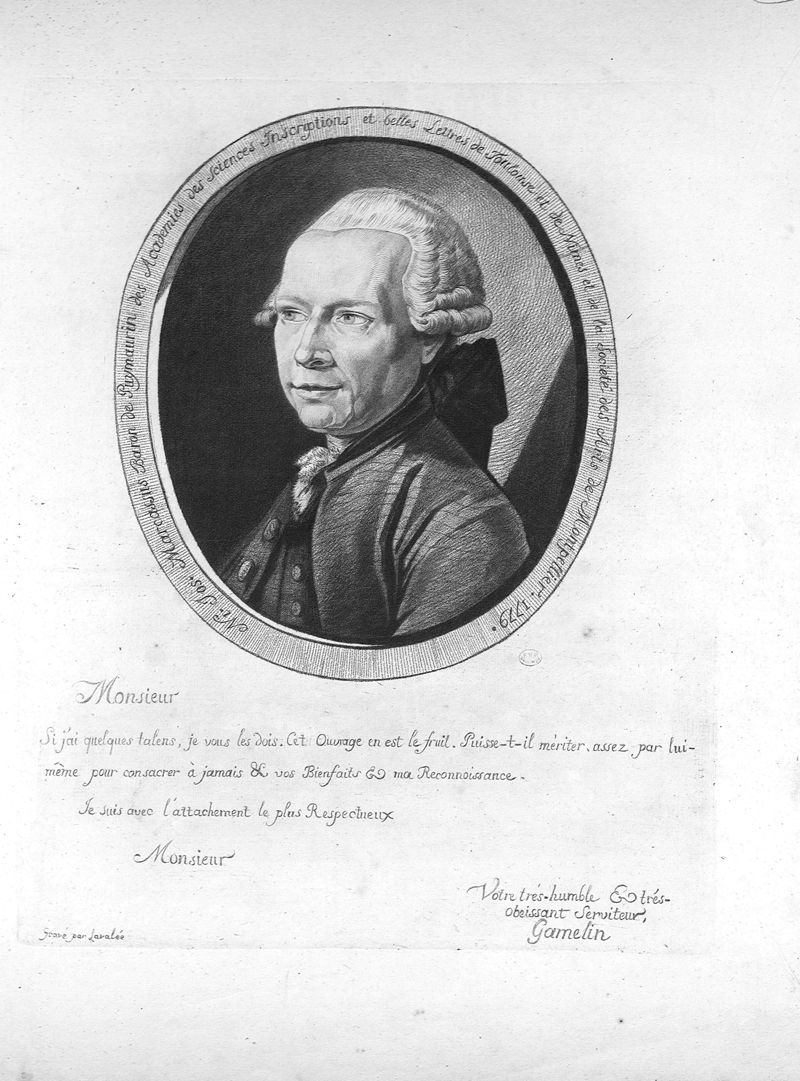 Nic. Jos. Marcassus Baron de Puymaurin, des Academies des Sciences Inscriptions et belles Lettres de Toulouse et de Nimes et de la Societé des Arts de Montpellier. 1779.
Monsieur
Si j'ai quelques talens, je vous les dois. Cet Ouvrage en est le fruit. Puisse-t-il mériter, assez par lui-
même pour consacrer à jamais & vos Bienfaits & ma Reconnoissance.
Je suis avec l'attachement le plus Respectueux
Monsieur
Votre trés-humble & trés-
obeissant Serviteur,
Gamelin
Gravé par Lavalée